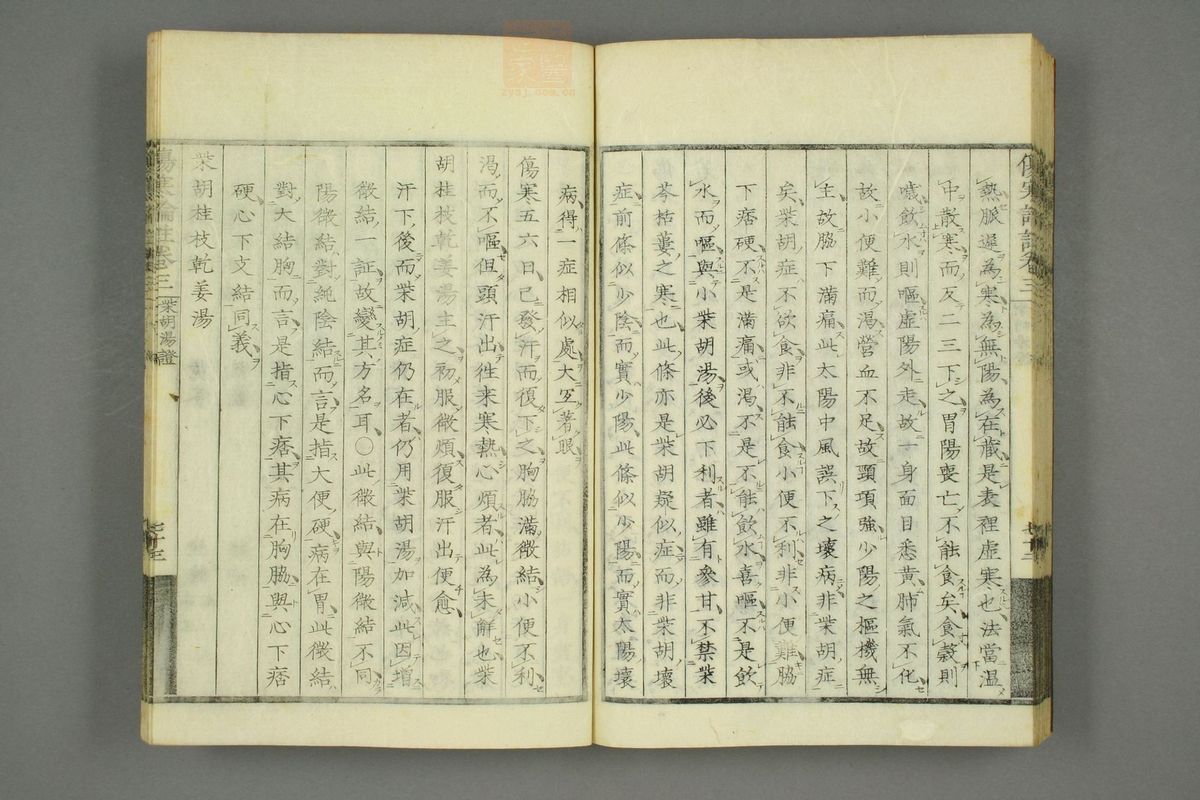 熱脈遲為寒為無陽為在藏是表裡虛寒也法當溫
中散寒而反二三下之胃陽喪亡不能食矣食穀則
噦飲水則嘔虛陽外走故一身面目悉黃肺氣不化
故小便難而渴營血不足故頸項強少陽之樞機無
主故脇下滿痛此太陽中風誤下之壞病非柴胡症
矣柴胡症不欲食非不能食小便不利非小便難脇
下痞硬不是滿痛或渴不是不能飲水喜嘔不是飲
水而嘔與小柴胡湯後必下利者雖有參甘不禁柴
芩括蔞之寒也此條亦是柴胡疑似症而非柴胡壞
症前條似少陰而實少陽此條似少陽而實太陽壞
病得一症相似處大宜著眼
傷寒五六日已發汗而復下之胸脇滿微結小便不利
渴而不嘔但頭汗出往來寒熱心煩者此為未解也柴
胡桂枝乾姜湯主之初服微煩復服汗出便愈
汗下後而柴胡症仍在者仍用柴胡湯加減此因增
微結一証故變其方名耳○此微結與陽微結不同
陽微結對純陰結而言是指大便硬病在胃此微結
對大結胸而言是指心下痞其病在胸脇與心下痞
硬心下支結同義
柴胡桂枝乾姜湯
傷寒論註卷三
柴胡湯證
七十三
zysj.com.cn